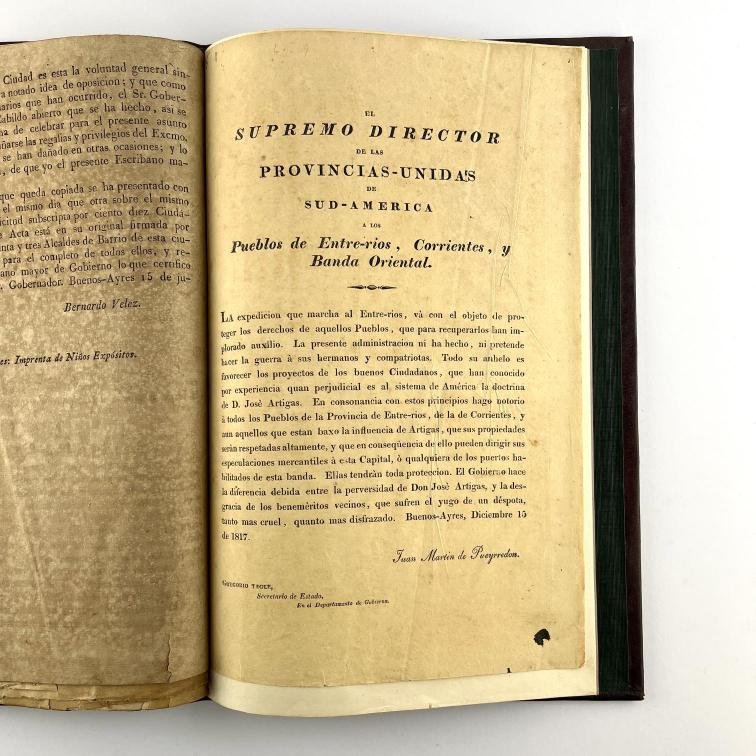 Ciudad es esta la voluntad general sin-
a notado idea de oposicion; y que como
narios que han ocurrido, el Sr. Gober-
abildo abierto que se ha hecho, asi se
na de celebrar para el presente asunto
ñarse las regalías y privilegios del Excmo.
se han dañado en otras ocasiones; y lo
, de que yo el presente Escribano ma-
que queda copiada se ha presentado con
el mismo dia que otra sobre el mismo
icitud subscripta por ciento diez Ciuda-
Acta está en su original firmada por
nta y tres Alcaldes de Barrio de esta ciu-
para el completo de todos ellos, y re-
ano mayor de Gobierno lo que certifico
. Gobernador. Buenos-Ayres 15 de ju-
Bernardo Velez.
es: Imprenta de Niños Expósitos.
EL
SUPREMO DIRECTOR
DE LAS
PROVINCIAS-UNIDAS
DE
SUD-AMERICA
A LOS
Pueblos de Entre-rios, Corrientes, y
Banda Oriental.
LA expedicion que marcha al Entre-rios, vá con el objeto de pro-
teger los derechos de aquellos Pueblos, que para recuperarlos han im-
plorado auxilio. La presente administracion ni ha hecho, ni pretende
hacer la guerra à sus hermanos y compatriotas. Todo su anhelo es
favorecer los proyectos de los buenos Ciudadanos, que han conocido
por experiencia quan perjudicial es al sistema de América la doctrina
de D. Josè Artigas. En consonancia con estos principios hago notorio
à todos los Pueblos de la Provincia de Entre-rios, de la de Corrientes, y
aun aquellos que estan baxo la influencia de Artigas, que sus propiedades
serán respetadas altamente, y que en conseqüencia de ello pueden dirigir sus
especulaciones mercantiles à esta Capital, ò qualquiera de los puertos ha-
bilitados de esta banda. Ellas tendràn toda proteccion. El Gobierno hace
la diferencia debida entre la perversidad de Don Josè Artigas, y la des-
gracia de los beneméritos vecinos, que sufren el yugo de un déspota,
tanto mas cruel, quanto mas disfrazado. Buenos-Ayres, Diciembre 15
de 1817.
Juan Martin de Pueyrredon.
GREGORIO TAGLE,
Secretario de Estado,
En el Departamento de Gobierno.